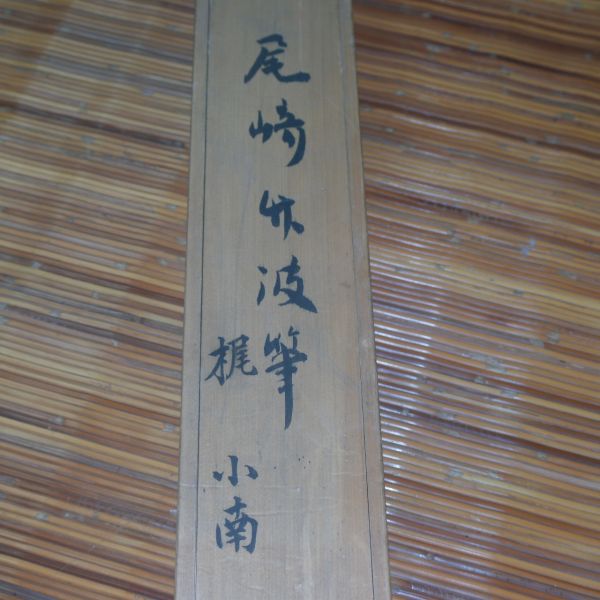 尾崎竹波筆
梶小南